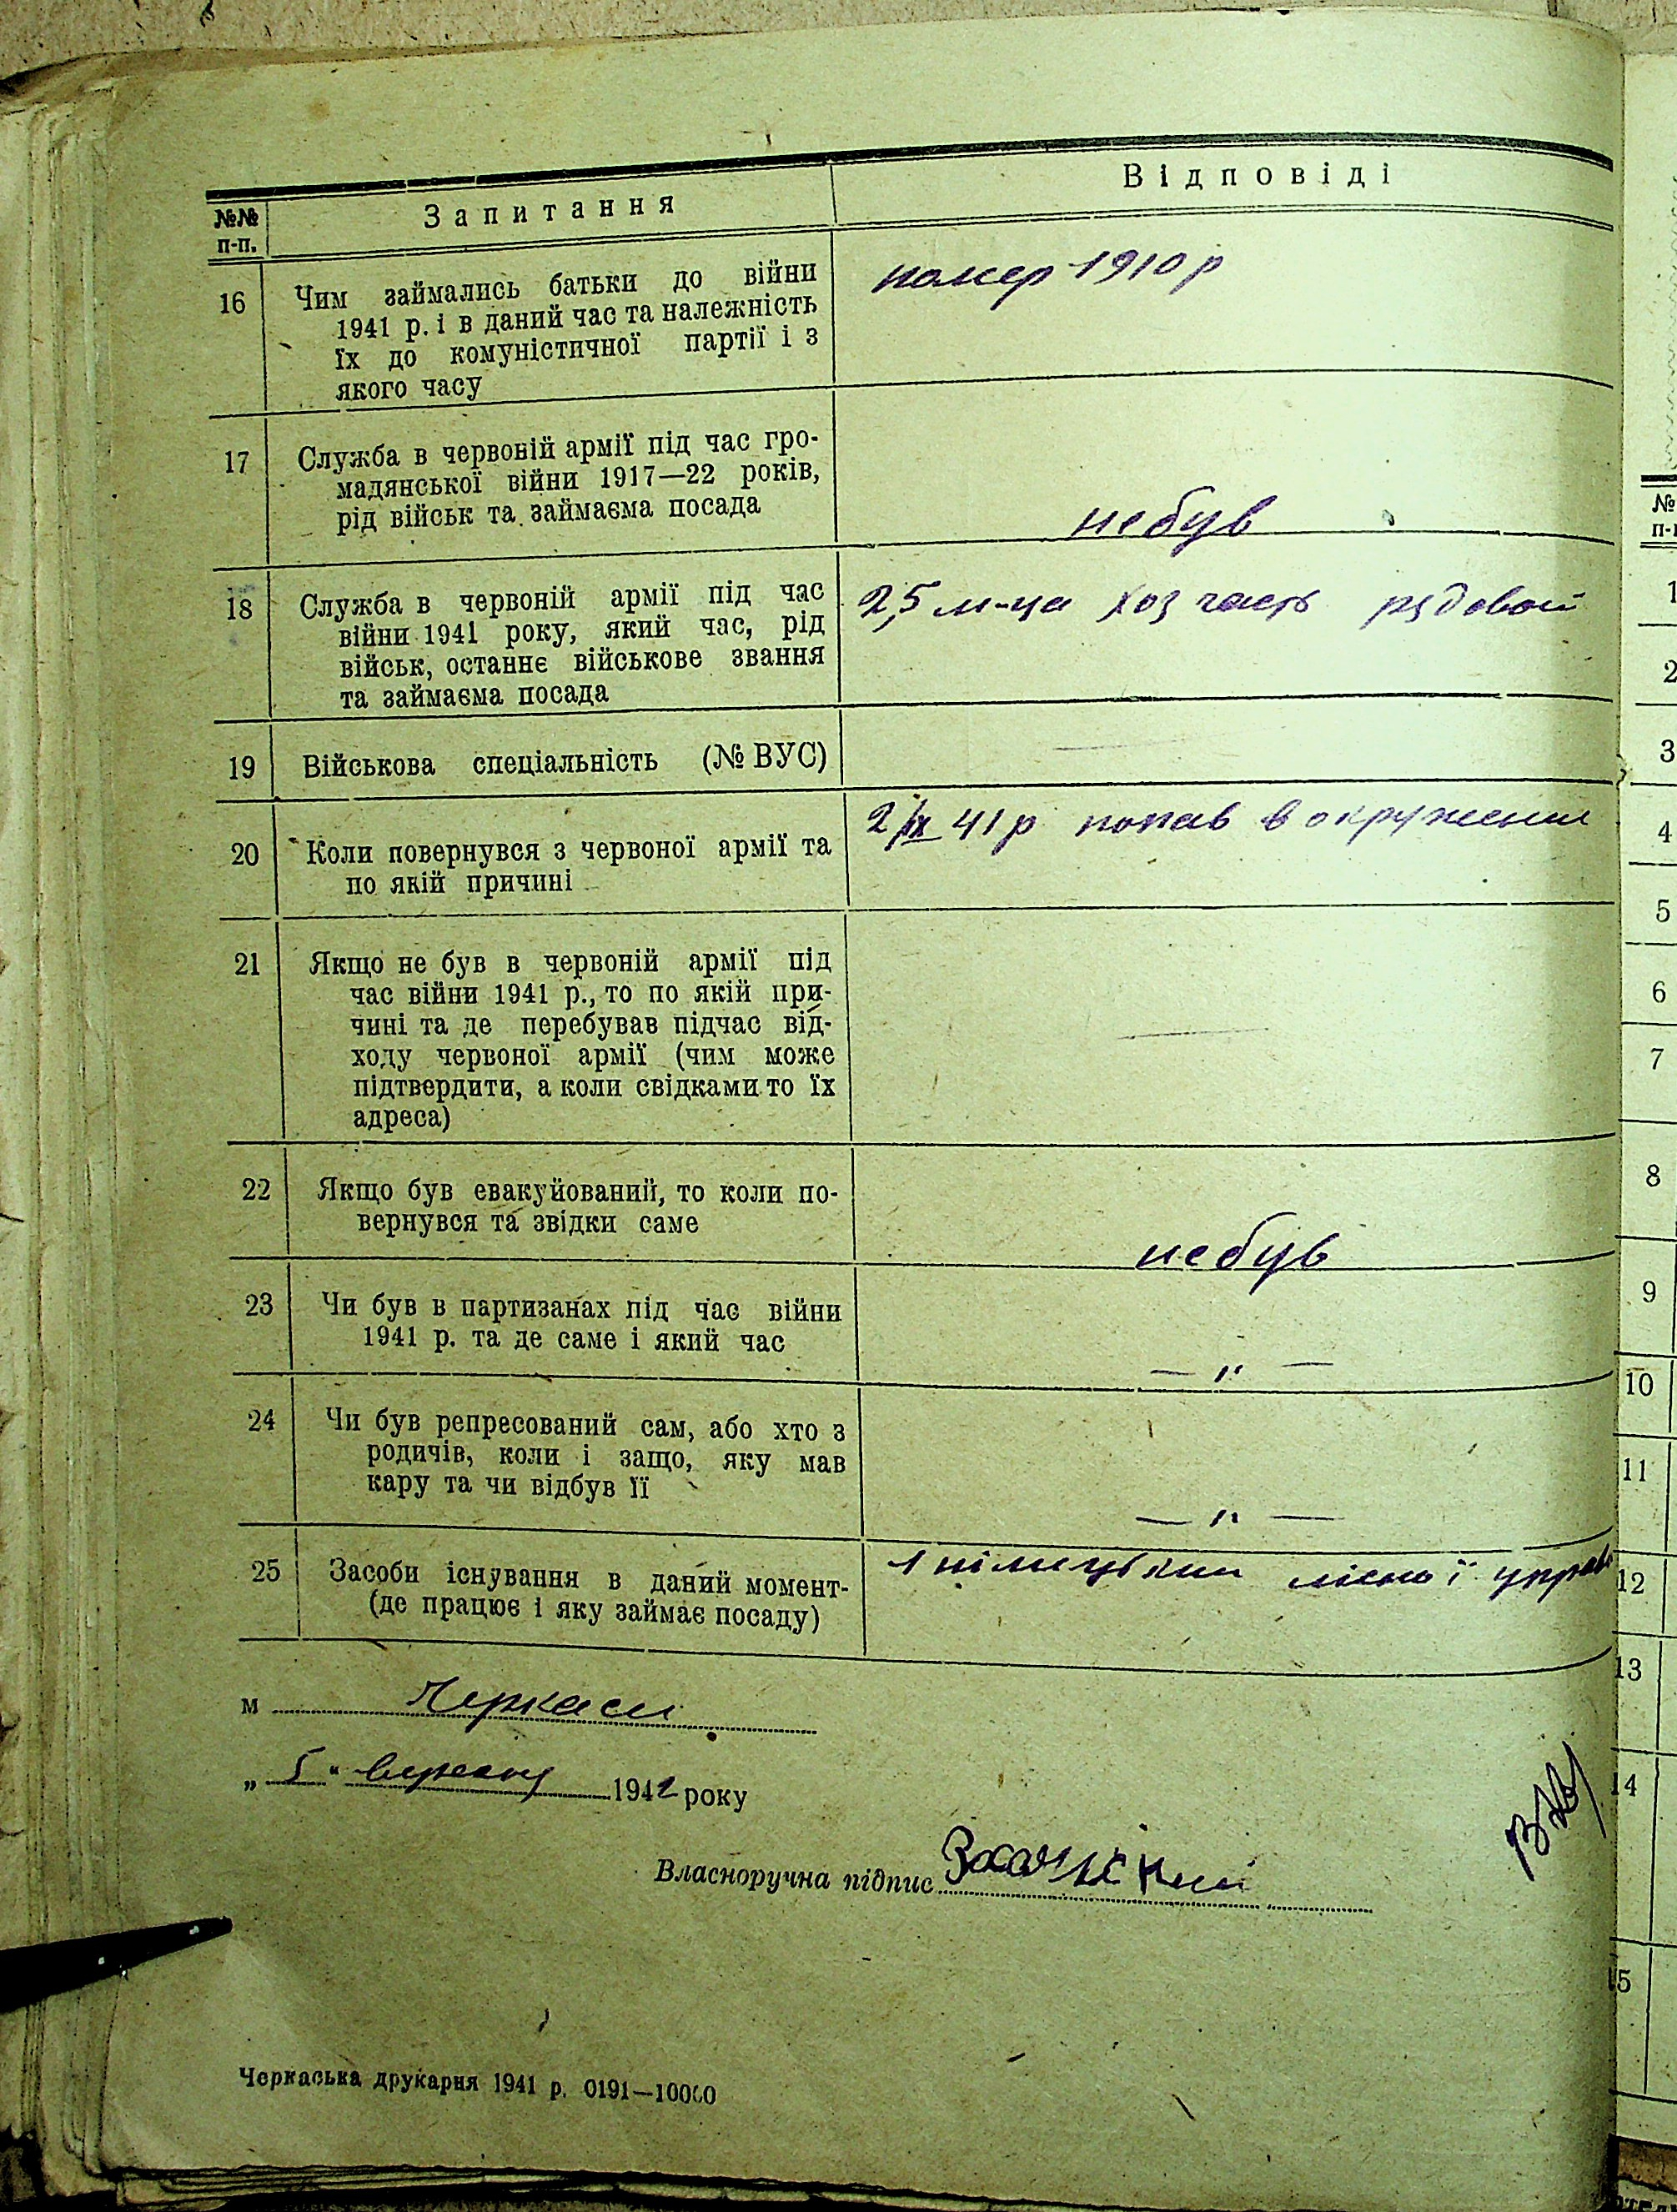 №№ п-п.
Запитання
Відповіді
16
Чим займались батьки до війни
1941 р. і в даний час та належність
їх до комуністичної партії і з
якого часу
помер 1910 р
17
Служба в червоній армії під час гро-
мадянської війни 1917—22 років,
рід військ та займаєма посада
небув
18
Служба в червоній армії під час
війни 1941 року, який час, рід
військ, останнє військове звання
та займаєма посада
2,5 м-ца хоз часть рядовой
19
Військова спеціальність (№ ВУС)
—
20
Коли повернувся з червоної армії та
по якій причині
2/IX 41 р попав в окружении
21
Якщо не був в червоній армії під
час війни 1941 р., то по якій при-
чині та де перебував підчас від-
ходу червоної армії (чим може
підтвердити, а коли свідками то їх
адреса)
—
22
Якщо був евакуйований, то коли по-
вернувся та звідки саме
небув
23
Чи був в партизанах під час війни
1941 р. та де саме і який час
— " —
24
Чи був репресований сам, або хто з
родичів, коли і защо, яку мав
кару та чи відбув її
— " —
25
Засоби існування в даний момент-
(де працює і яку займає посаду)
м Черкаси
„ 5 " березня 1942 року
Власноручна підпис
Черкаська друкарня 1941 р. 0191—10000
№
п-п
1
2
3
4
5
6
7
8
9
10
11
12
13
14
15